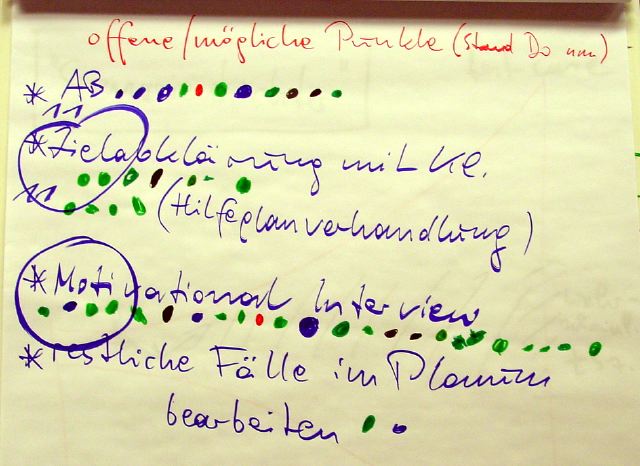 offene/mögliche Punkte (Stand Do nm)
* AB
11
* Zielabklärung mit Kl.
11
(Hilfeplanverhandlung)
* Motivational Interview
* restliche Fälle im Plenum
bearbeiten